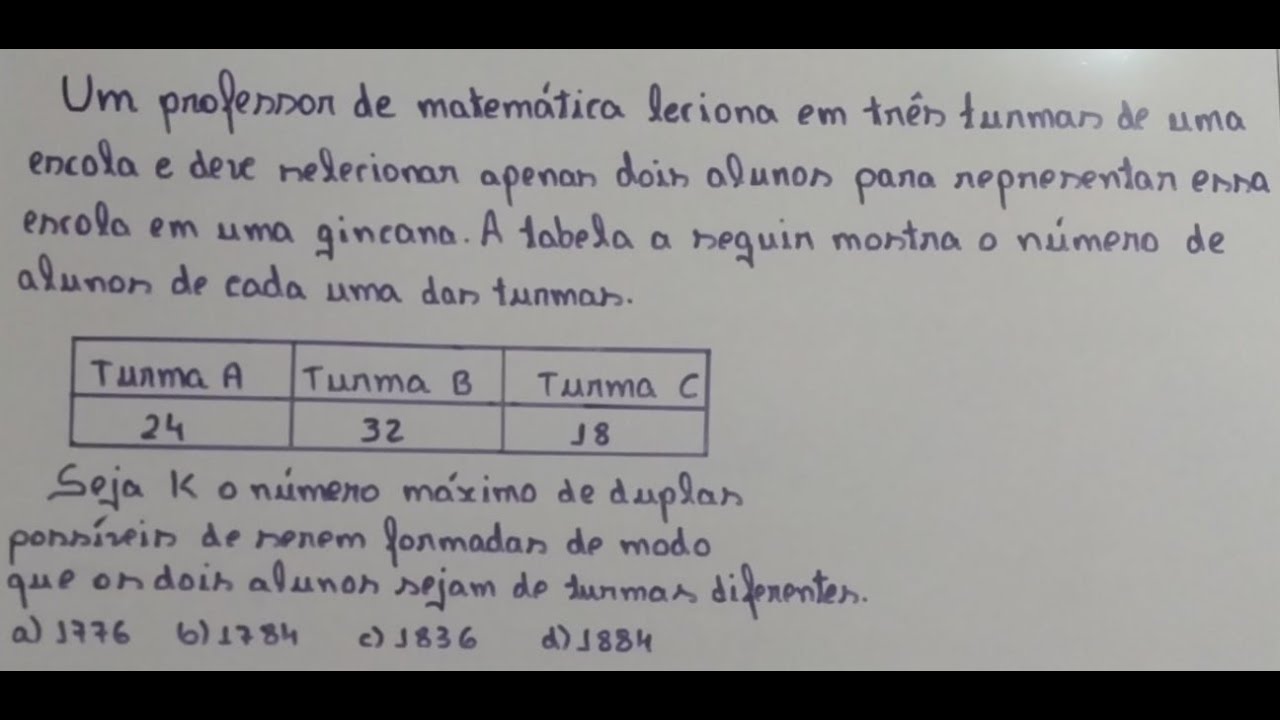 Um professor de matemática leciona em três turmas de uma
escola e deve selecionar apenas dois alunos para representar essa
escola em uma gincana. A tabela a seguir mostra o número de
alunos de cada uma das turmas.
Turma A Turma B Turma C
24 32 18
Seja K o número máximo de duplas
possíveis de serem formadas de modo
que os dois alunos sejam de turmas diferentes.
a) 1776 b) 1784 c) 1836 d) 1884